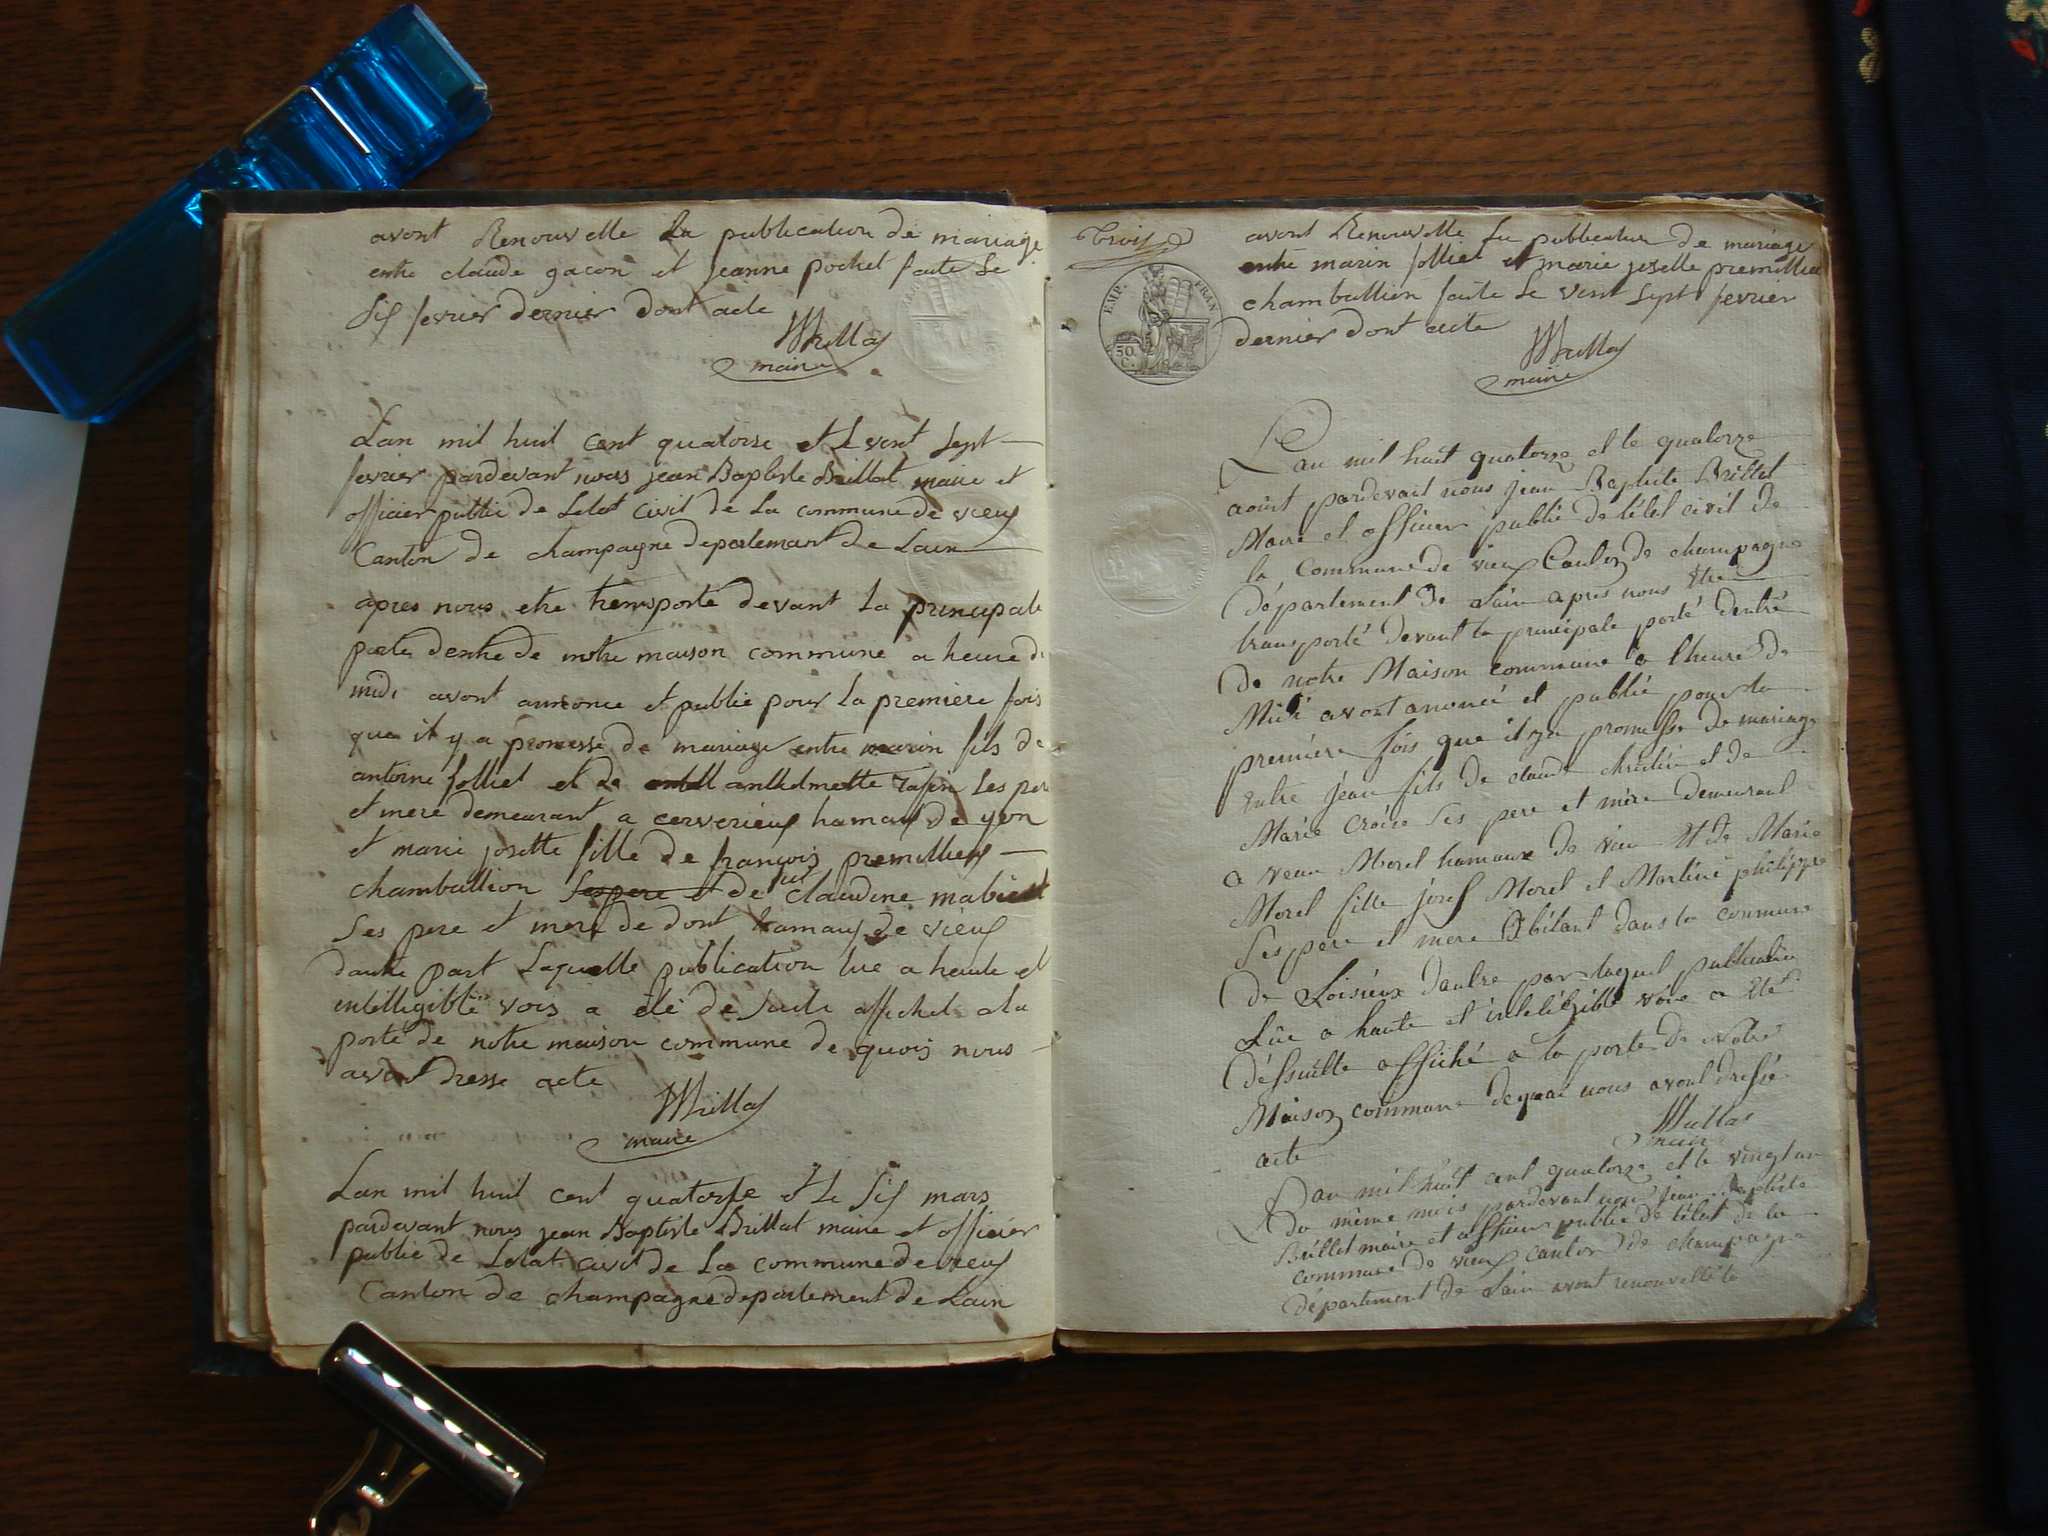 avont Renouvelle La publication de mariage
entre claude gacon et jeanne pochet faite Le
Sis fevrier dernier dont acte
Brillat
maire
Lan mil huit cent quatorse et Le vent Sept
fevrier pardevant nous jean Baptiste Brillat maire et
officier public de Letat civil de La commune de vieux
Canton de champagne departemant de Lain
apres nous etre transporte devant La principale
porte dentre de notre maison commune a heure de
midi avont annonce et publie pour La premiere fois
que il y a promesse de mariage entre marin fils de
antoine folliet et de anthelmette Les pere
et mere demeurant a cerverieux hamau de yon
et marie josette fille de françois premillieu
chamballion de claudine
Ses pere et mere de dont hamau de vieux
dautre part Laquelle publication lue a haute et
intelligible vois a été de Suite affiché a La
porte de notre maison commune de quois nous
avont dresse acte
Brillat
maire
Lan mil huit cent quatorse et Le Sis mars
pardevant nous jean Baptiste Brillat maire et officier
public de Letat civil de La commune de vieux
Canton de champagne departement de Lain
Trois
EMP. FRAN
50
C.
avont Renouvelle La publication de mariage
entre marin folliet et marie joselle premillieu
chamballion faite Le vent Sept fevrier
dernier dont acte
Brillat
maire
Lan mil huit quatorze et le quatorze
aoüt pardevant nous jean Baptiste Brillat
Maire et officier public de létat civil de
la Commune de vieux Canton de champagne
département de Lain apres nous être
transporté devant la principale porté dentré
de notre Maison commune a lheure de
Midi avont anoncé et publié pour la
premiére fois que il ya promesse de mariage
Entre jean fils de claude chrétin et de
Marie Croire Ses pere et mére demeurant
a veau Morel hamaux de vieu Et de Marie
Morel fille josef Morel et Martine philippe
Ses pere et mere Abitant dans la commune
de Loisieux dautre part laquel publication
Lüe a haute et intéligible voie a Eté
déssuitte affiché a la porte de notre
Maison commune de quoi nous avont dressé
acte
Brillat
maire
Lan mil huit cent quatorze et le vingt un
do même mois pardevant nous jean Baptiste
Brillet maire et officier public de létat de la
commune de vieux canton de champagne
département de Lain avont renouvellé la